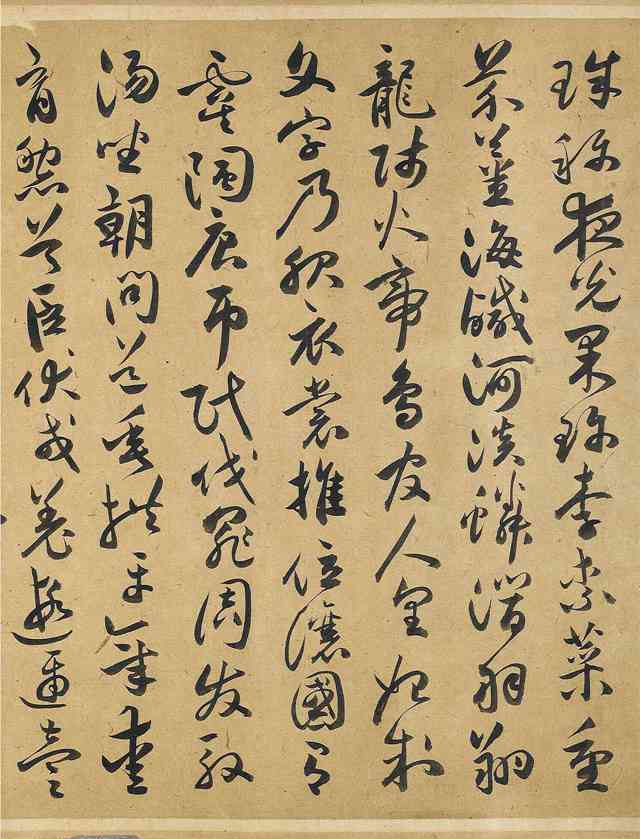 珠稱夜光果珍李柰菜重
芥薑海鹹河淡鱗潛羽翔
龍師火帝鳥官人皇始制
文字乃服衣裳推位讓國有
虞陶唐弔民伐罪周發殷
湯坐朝問道垂拱平章愛
育黎首臣伏戎羌遐邇壹